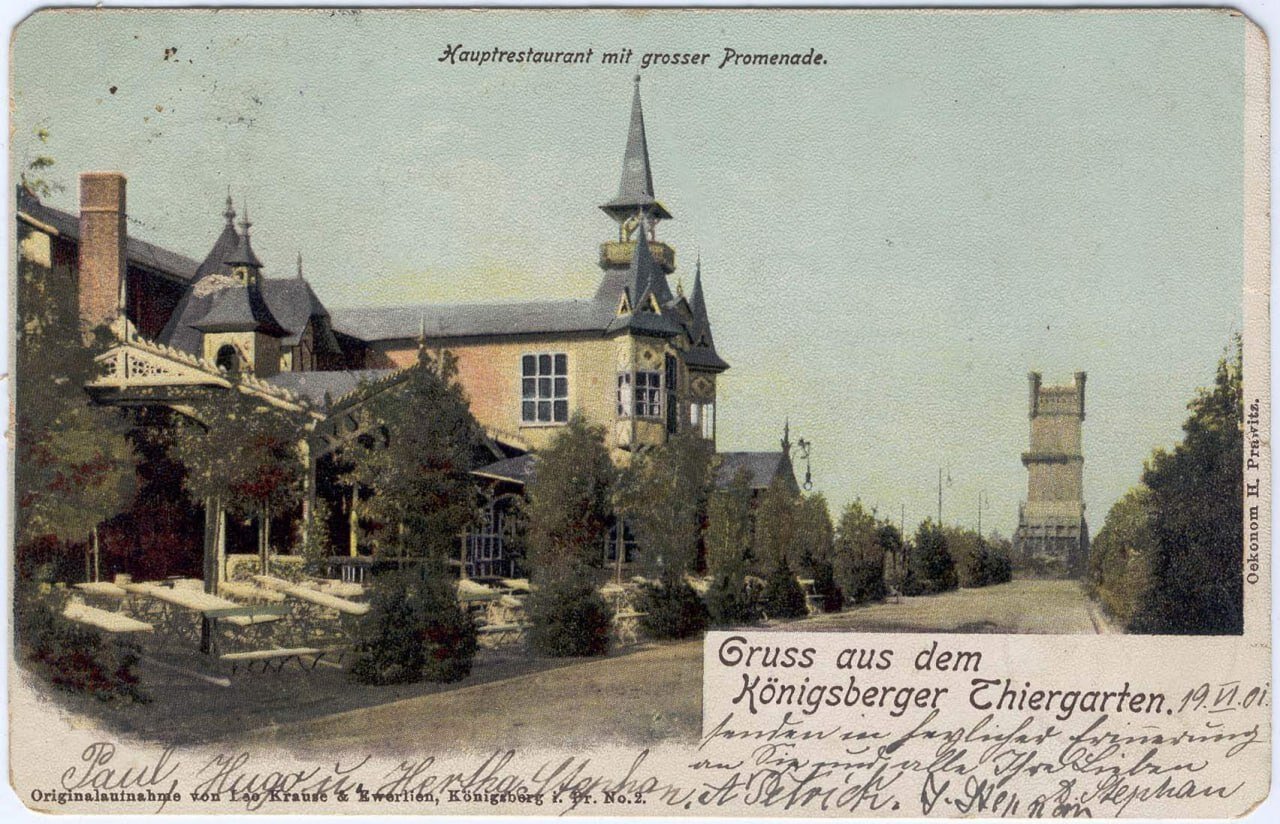 Hauptrestaurant mit grosser Promenade.
Gruss aus dem
Königsberger Thiergarten. 19.VI.01.
senden in herzlicher Erinnerung
an Sie und alle Ihre Lieben
Paul, Hugo u. Hertha Stephan. A Petrick. J. Stephan Stephan
Originalaufnahme von Leo Krause & Ewerlien, Königsberg i. Pr. No. 2.
Oekonom H. Prawitz.